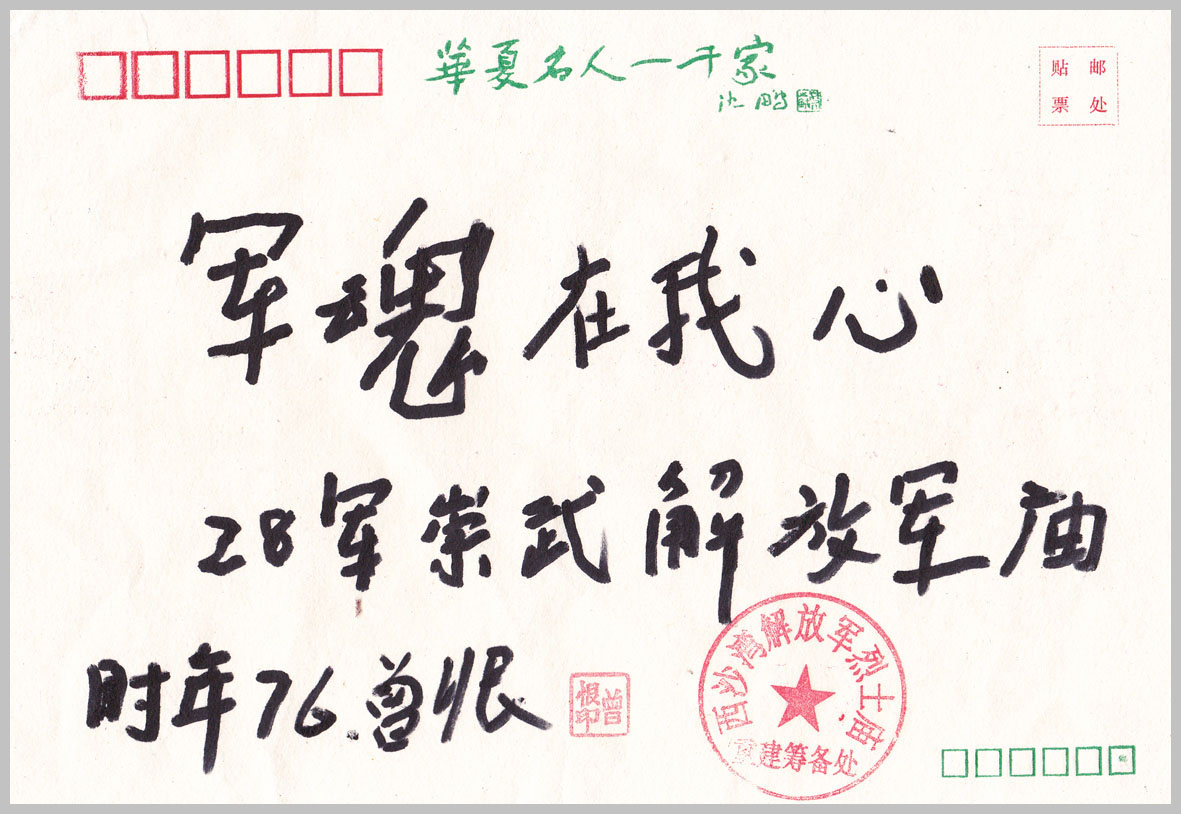 華夏名人一千家
沈鹏
贴邮
票处
军魂在我心
28军崇武解放军庙
时年76.曾恨
曾恨印
西沙湾解放军烈士庙
建筹备处